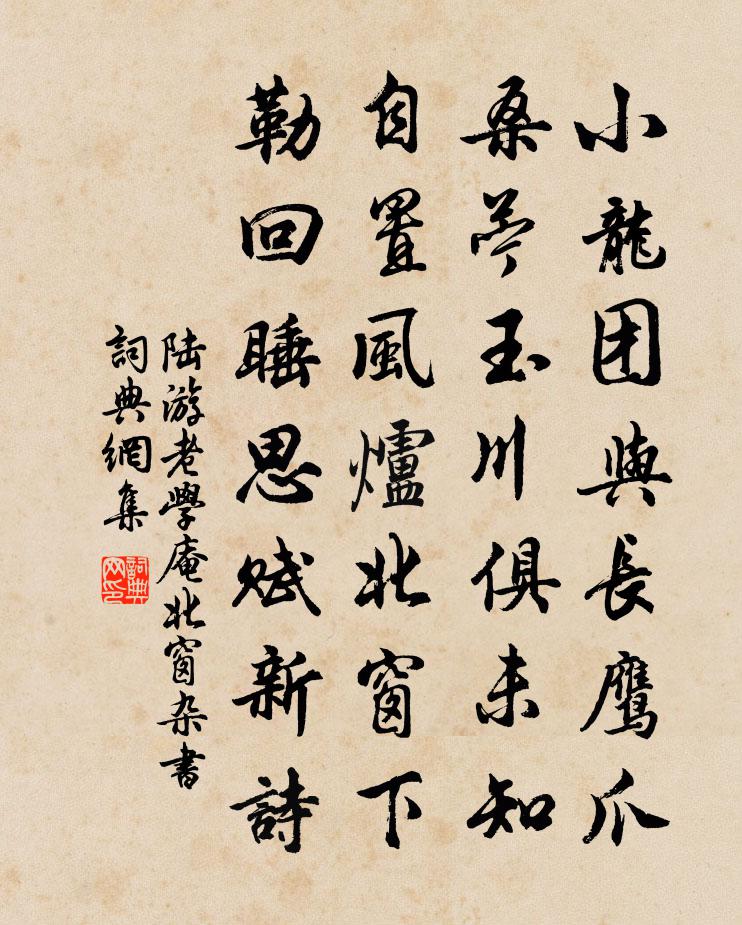 小龍团與長鷹爪
桑苧玉川俱未知
自置風爐北窗下
勒回睡思赋新詩
陆游老學庵北窗杂書
詞典網集
詞典网印